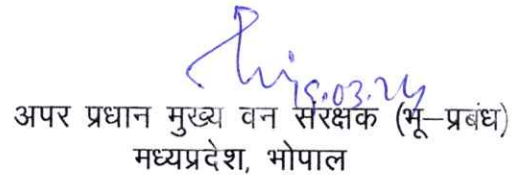 15.03.24
अपर प्रधान मुख्य वन संरक्षक (भू–प्रबंध)
मध्यप्रदेश, भोपाल